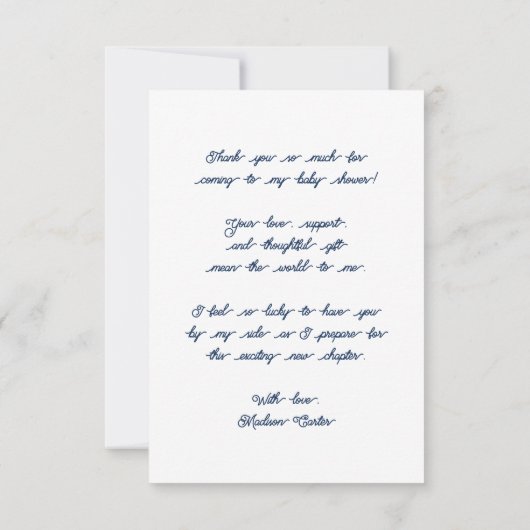 Thank you so much for
coming to my baby shower!
Your love, support,
and thoughtful gift
mean the world to me.
I feel so lucky to have you
by my side as I prepare for
this exciting new chapter.
With love,
Madison Carter